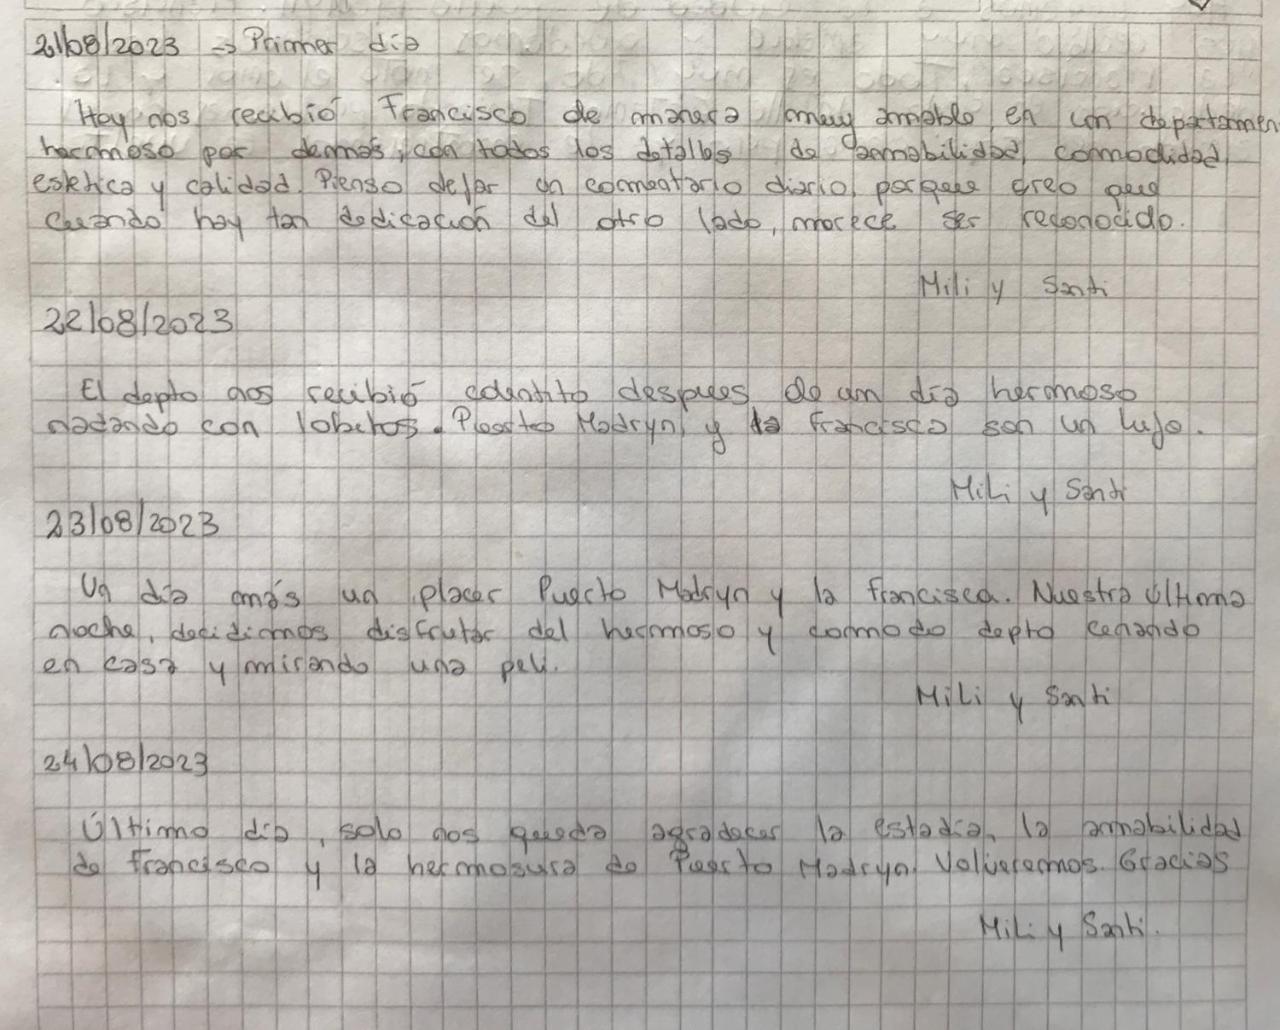 21/08/2023 → Primer día
Hoy nos recibió Francisco de manera muy amable, en un departamen
hermoso por demás, con todos los detalles de amabilidad, comodidad,
estética y calidad. Pienso dejar un comentario diario, porque creo que
cuando hay tan dedicación del otro lado, merece ser reconocido.
Mili y Santi
22/08/2023
El depto nos recibió calentito despues de un día hermoso
nadando con lobitos. Puerto Madryn y la Francisca son un lujo.
Mili y Santi
23/08/2023
Un día más un placer Puerto Madryn y la francisca. Nuestra última
noche, decidimos disfrutar del hermoso y comodo depto cenando
en casa y mirando una peli.
Mili y Santi
24/08/2023
Último día, solo nos queda agradecer la estadía, la amabilidad
de francisco y la hermosura de Puerto Madryn. Volveremos. Gracias
Mili y Santi.